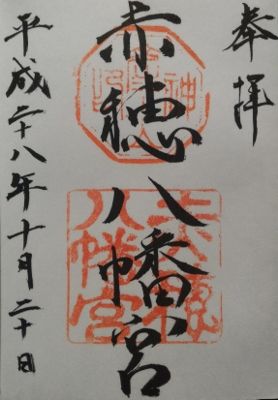 奉拝
赤穂八幡宮
平成二十八年十月二十日
八幡宮